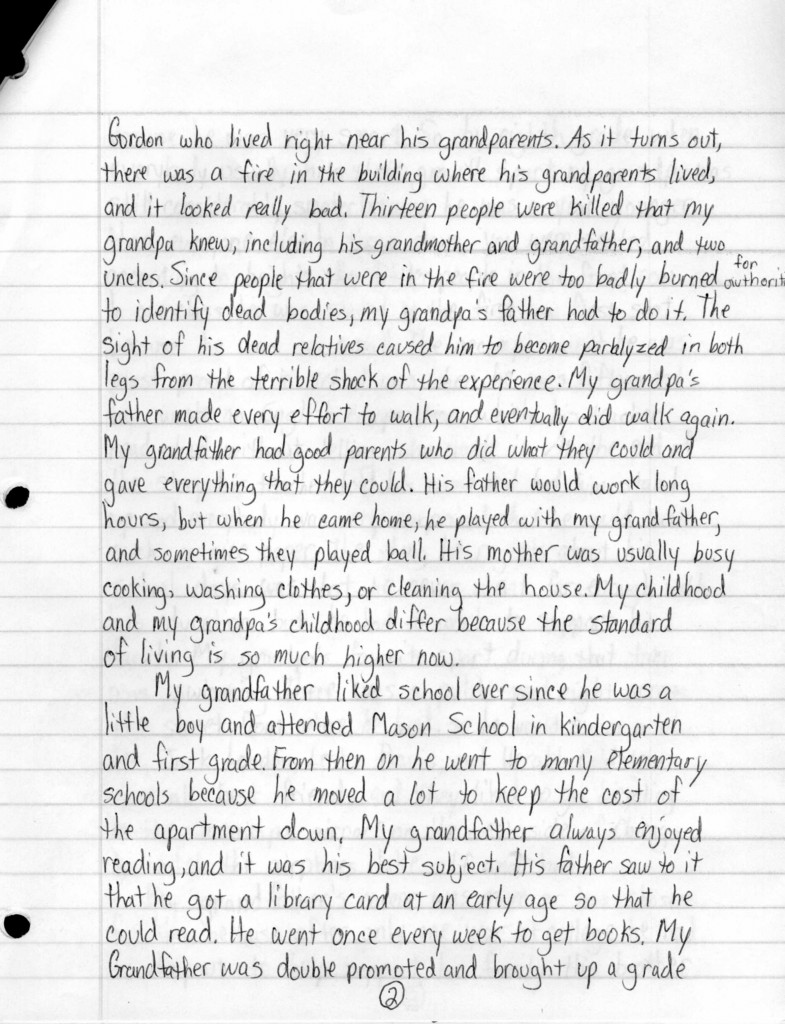 Gordon who lived right near his grandparents. As it turns out,
there was a fire in the building where his grandparents lived,
and it looked really bad. Thirteen people were killed that my
grandpa knew, including his grandmother and grandfather, and two
uncles. Since people that were in the fire were too badly burned for authorit
to identify dead bodies, my grandpa's father had to do it. The
sight of his dead relatives caused him to become paralyzed in both
legs from the terrible shock of the experience. My grandpa's
father made every effort to walk, and eventually did walk again.
My grandfather had good parents who did what they could and
gave everything that they could. His father would work long
hours, but when he came home, he played with my grandfather,
and sometimes they played ball. His mother was usually busy
cooking, washing clothes, or cleaning the house. My childhood
and my grandpa's childhood differ because the standard
of living is so much higher now.
My grandfather liked school ever since he was a
little boy and attended Mason School in kindergarten
and first grade. From then on he went to many elementary
schools because he moved a lot to keep the cost of
the apartment down. My grandfather always enjoyed
reading, and it was his best subject. His father saw to it
that he got a library card at an early age so that he
could read. He went once every week to get books. My
Grandfather was double promoted and brought up a grade
2